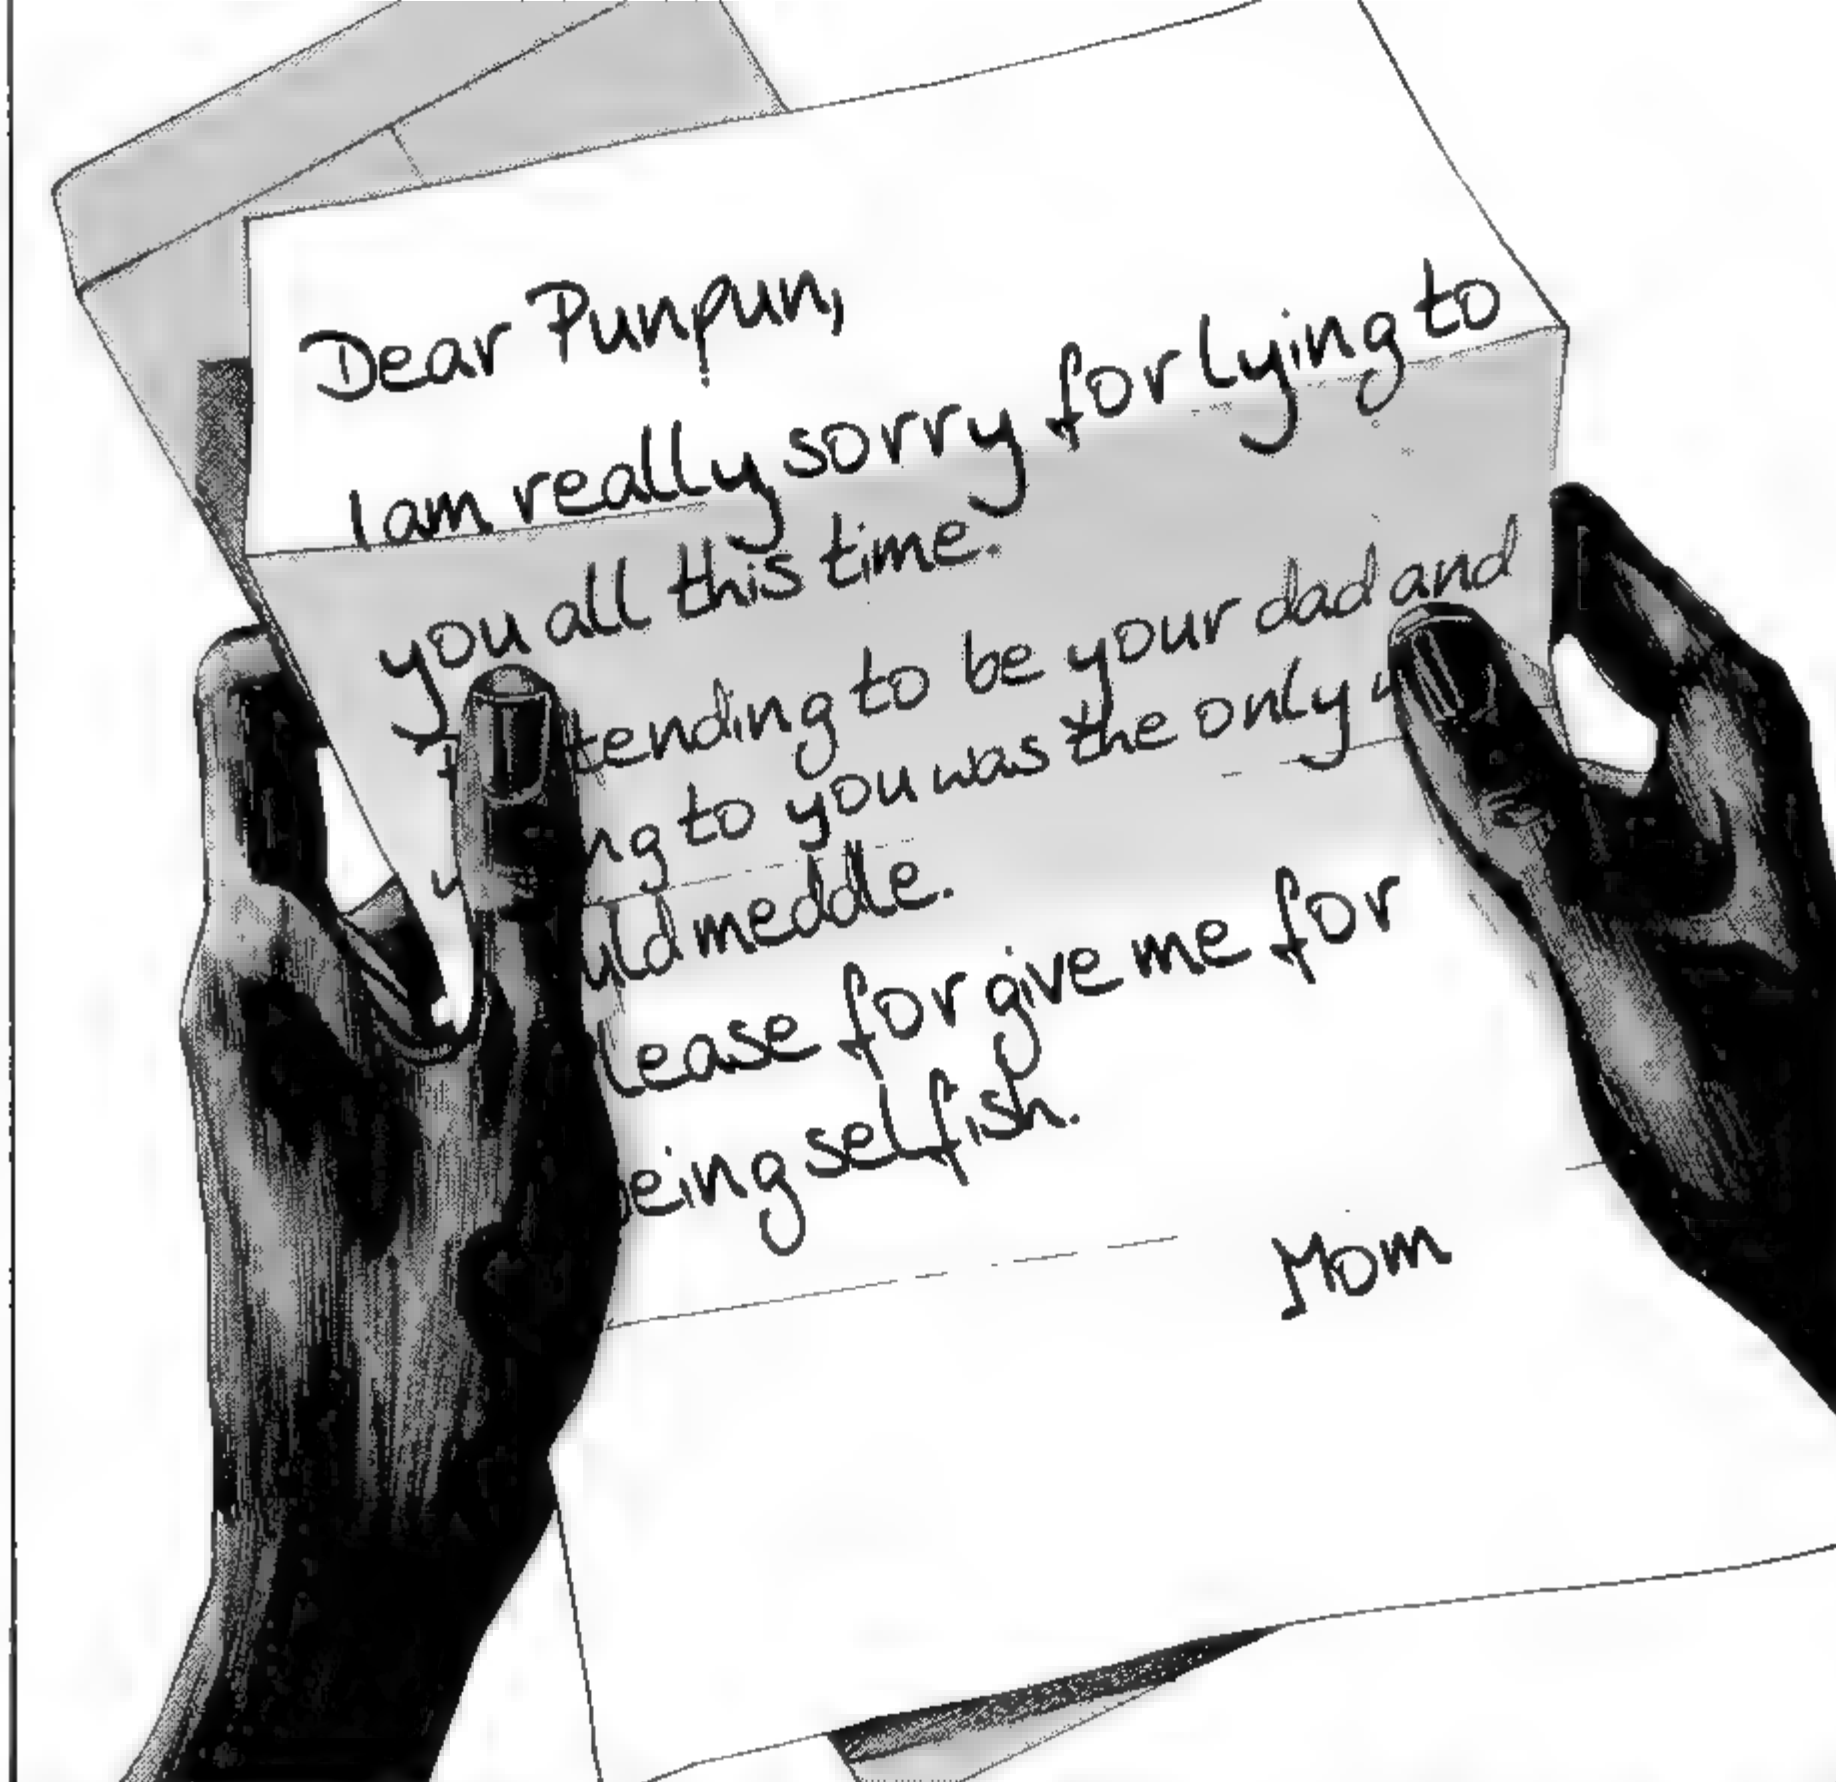 Dear Punpun,
I am really sorry for lying to
you all this time.
tending to be your dad and
ng to you was the only
uld meddle.
lease forgive me for
eing selfish.
Mom